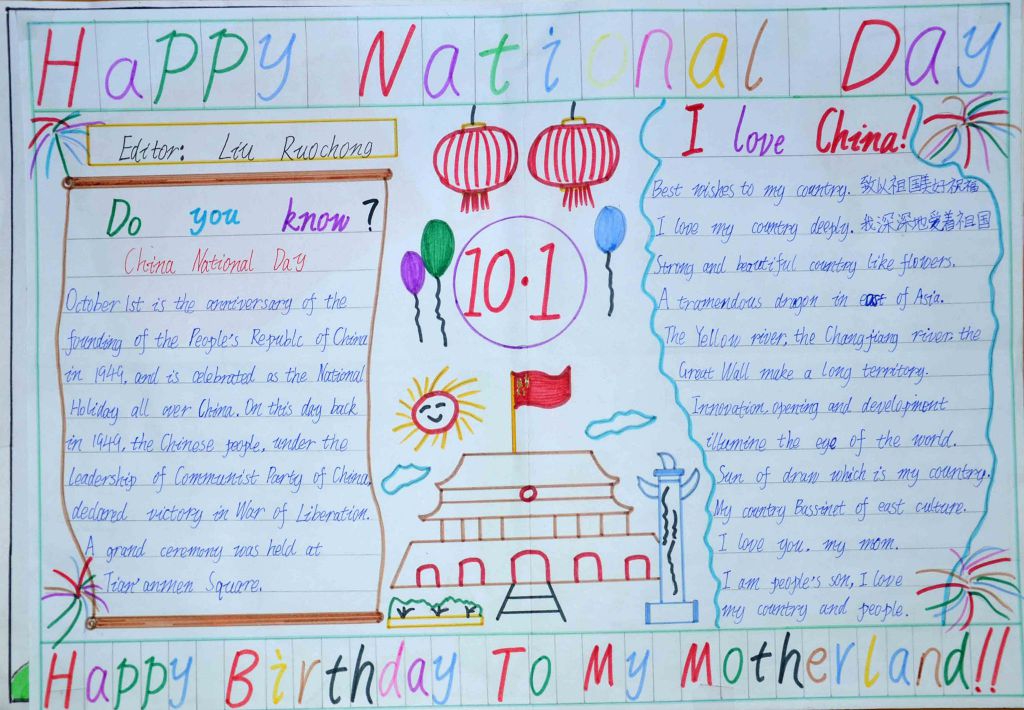 Happy National Day
Editor: Liu Ruochong
Do you know?
China National Day
October 1st is the anniversary of the
founding of the People's Republc of China
in 1949, and is celebrated as the National
Holiday all over China. On this day back
in 1949, the Chinese people, under the
leadership of Communist Party of China,
declared victory in War of Liberation.
A grand ceremony was held at
Tian'anmen Square.
10·1
I love China!
Best wishes to my country. 致以祖国美好祝福
I love my country deeply. 我深深地爱着祖国
Strong and beautiful country like flowers.
A tramendous dragon in east of Asia.
The Yellow river, the Changjiang river, the
Great Wall make a long territory.
Innovation, opening and development
illumine the eye of the world.
Sun of draw which is my country.
My country Bassinet of east culture.
I love you. my mom.
I am people's son, I love
my country and people.
Happy Birthday To My Motherland!!